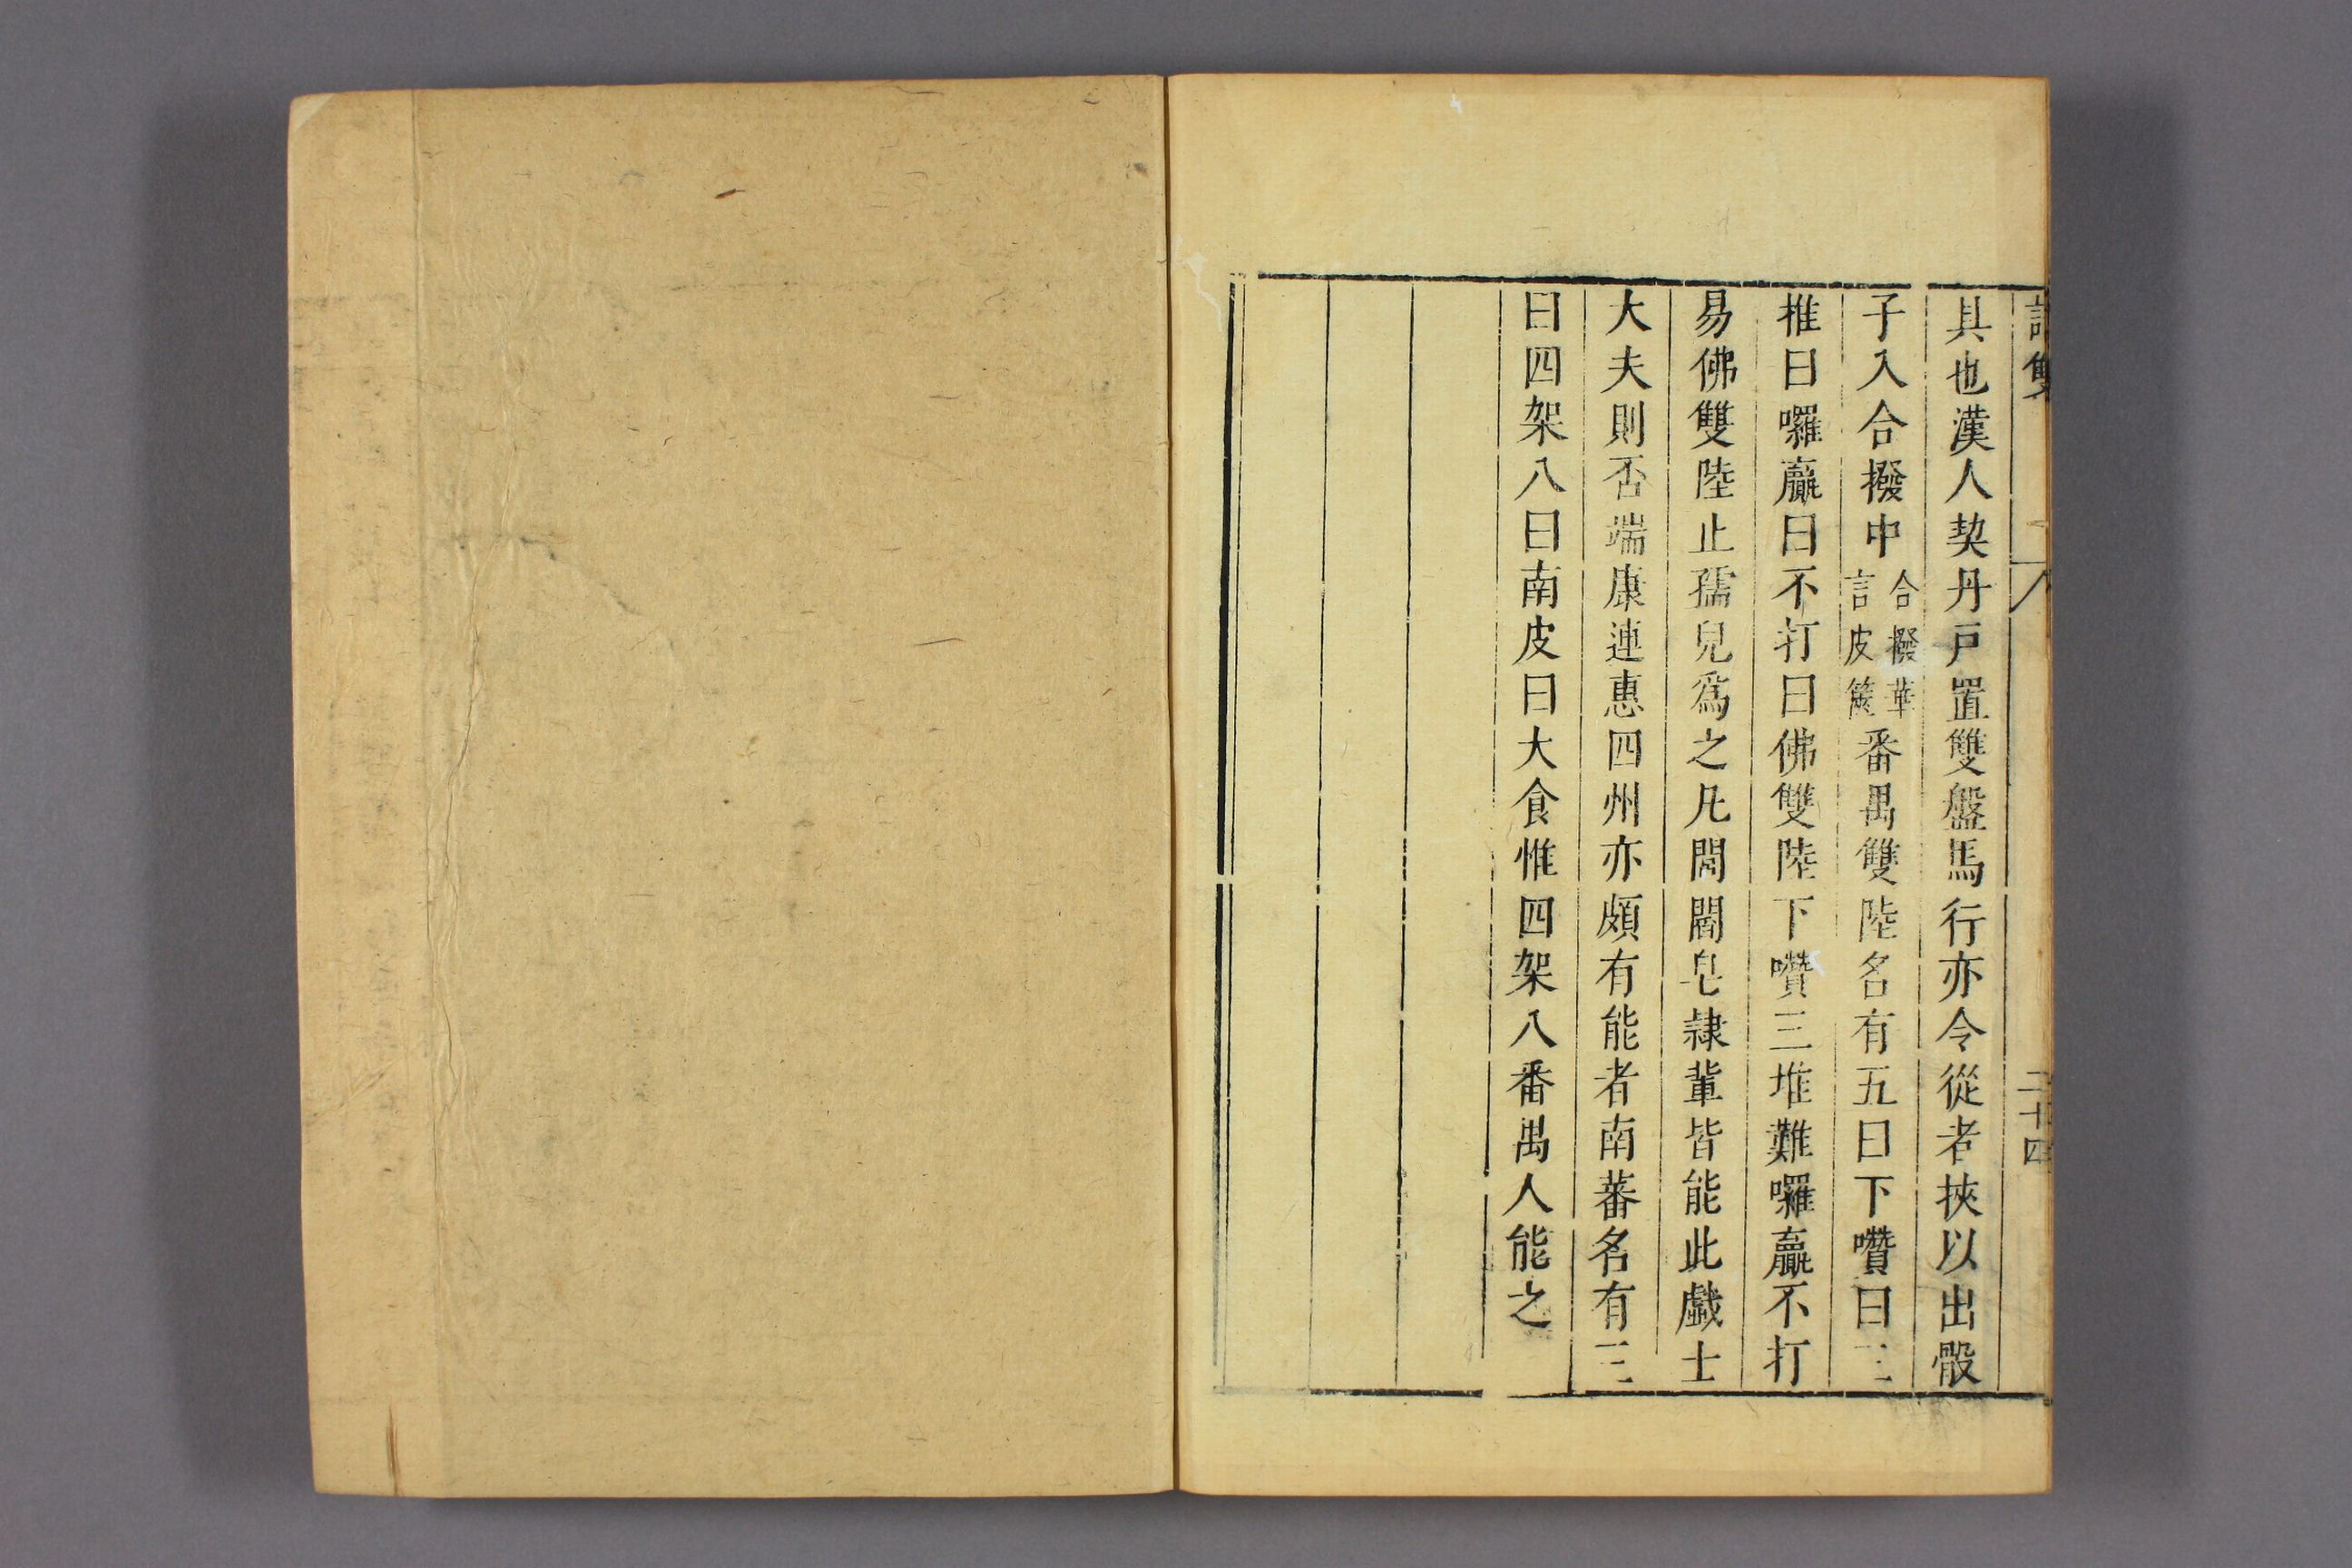 譜雙
二十四
具也漢人契丹戶置雙盤馬行亦令從者挾以出骰
子入合撥中合撥華言皮篋番禺雙陸名有五曰下囋曰三
堆曰囉贏曰不打曰佛雙陸下囋三堆難囉贏不打
易佛雙陸止孺兒爲之凡閭閻皂隷輩皆能此戲士
大夫則否端康連惠四州亦頗有能者南蕃名有三
曰四架八曰南皮曰大食惟四架八番禺人能之